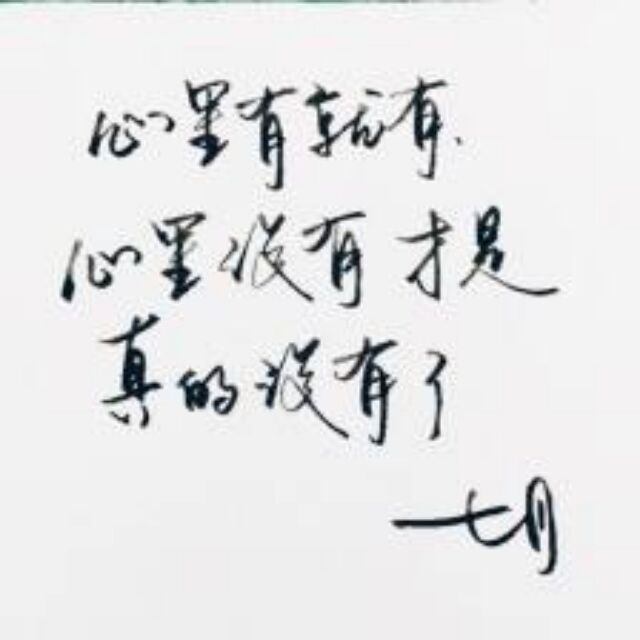 心里有就有.
心里没有才是
真的没有了
七月